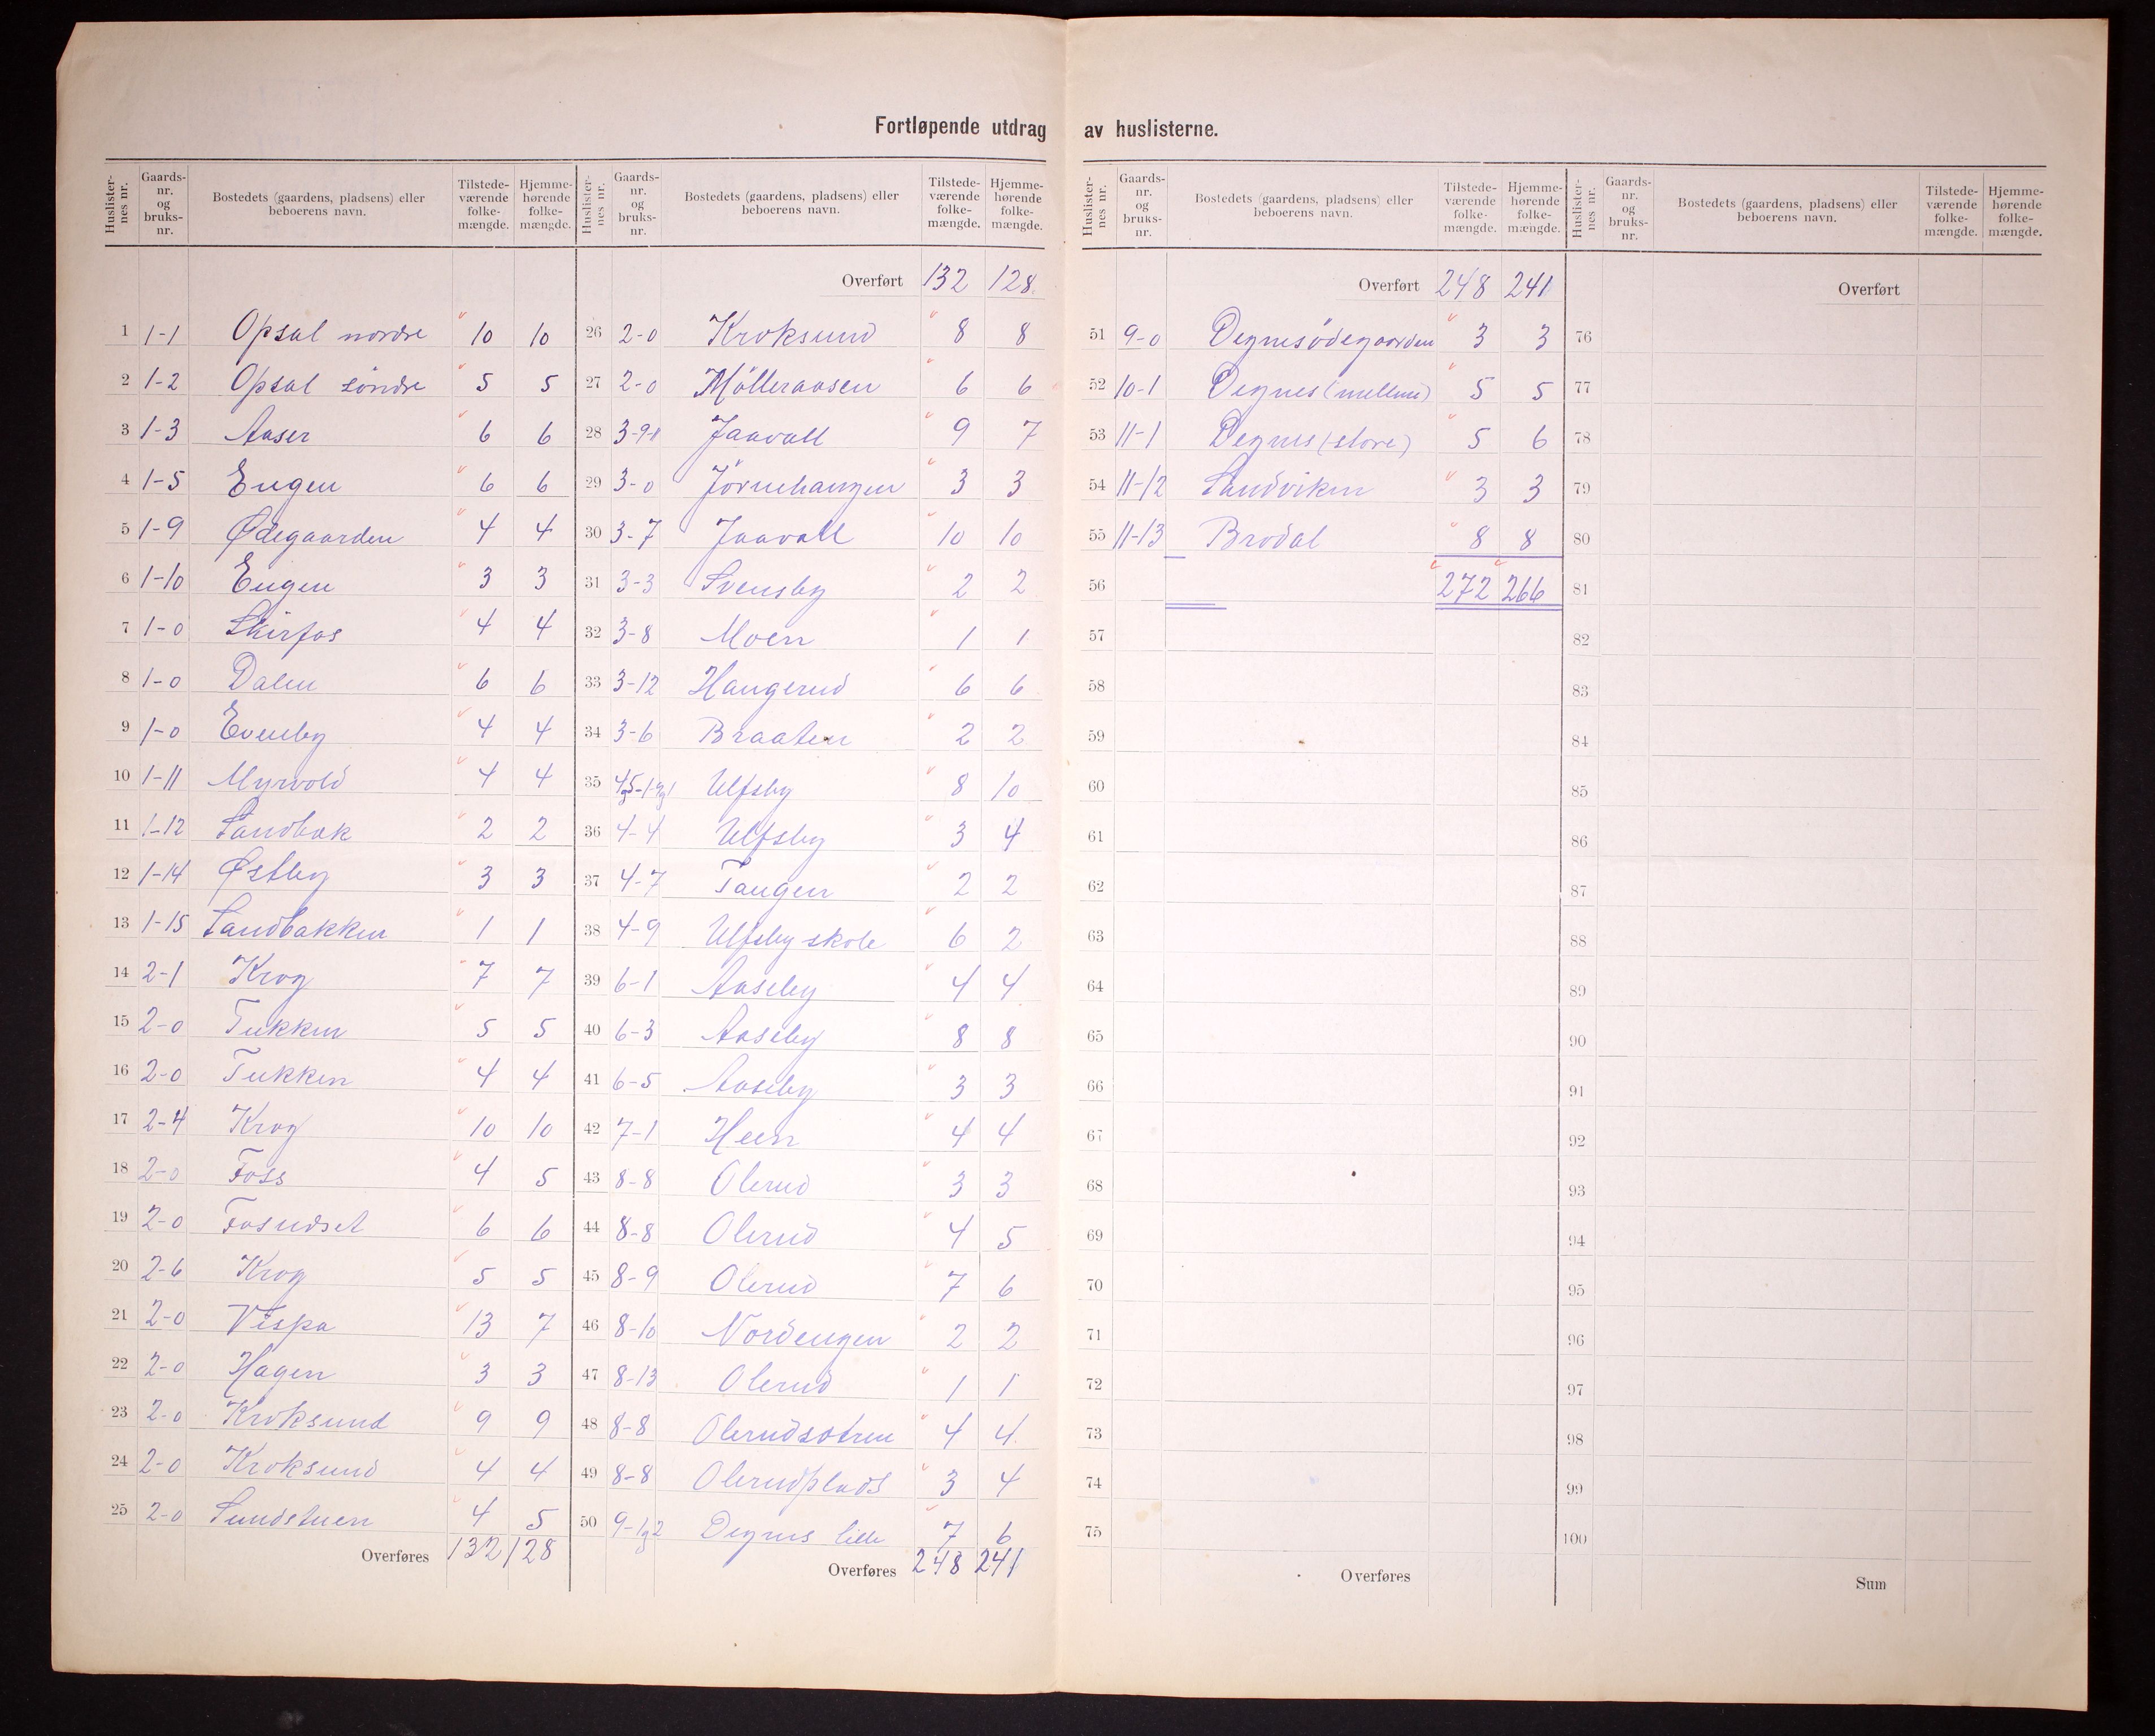 Fortløpende utdrag av huslisterne.
Huslister-nes nr. Gaards-nr. og bruks-nr. Bostedets (gaardens, pladsens) eller beboerens navn. Tilstede-værende folke-mængde. Hjemme-hørende folke-mængde.
1 1-1 Opsal nordre 10 10
2 1-2 Opsal söndre 5 5
3 1-3 Aaser 6 6
4 1-5 Engen 6 6
5 1-9 Ødegaarden 4 4
6 1-10 Engen 3 3
7 1-0 Skirfos 4 4
8 1-0 Dalen 6 6
9 1-0 Evenby 4 4
10 1-11 Myrvold 4 4
11 1-12 Sandbæk 2 2
12 1-14 Østby 3 3
13 1-15 Sandbakken 1 1
14 2-1 Krog 7 7
15 2-0 Tukken 5 5
16 2-0 Tukken 4 4
17 2-4 Krog 10 10
18 2-0 Foss 4 5
19 2-0 6 6
20 2-6 Krog 5 5
21 2-0 Vispa 13 7
22 2-0 Hagen 3 3
23 2-0 Kroksund 9 9
24 2-0 Kroksund 4 4
25 2-0 Sundstuen 4 5
Overføres 132 128
Huslister-nes nr. Gaards-nr. og bruks-nr. Bostedets (gaardens, pladsens) eller beboerens navn. Tilstede-værende folke-mængde. Hjemme-hørende folke-mængde.
Overført 132 128
26 2-0 Kroksund 8 8
27 2-0 Mölleraasen 6 6
28 3-9-1 Jaavall 9 7
29 3-0 Jörnehaugen 3 3
30 3-7 Jaavall 10 10
31 3-3 Svensby 2 2
32 3-8 Moen 1 1
33 3-12 Haugerud 6 6
34 3-6 Braaten 2 2
35 Ulfsby 8 10
36 4-4 Ulfsby 3 4
37 4-7 Tangen 2 2
38 4-9 Ulfsby skole 6 2
39 6-1 Aaseby 4 4
40 6-3 Aaseby 8 8
41 6-5 Aaseby 3 3
42 7-1 Heen 4 4
43 8-8 Olerud 3 3
44 8-8 Olerud 4 5
45 8-9 Olerud 7 6
46 8-10 Nordengen 2 2
47 8-13 Olerud 1 1
48 8-8 Olerudsætren 4 4
49 8-8 Olerudplads 3 4
50 9-1 og 2 Degnes lille 7 6
Overføres 248 241
Huslister-nes nr. Gaards-nr. og bruks-nr. Bostedets (gaardens, pladsens) eller beboerens navn. Tilstede-værende folke-mængde. Hjemme-hørende folke-mængde.
Overført 248 241
51 9-0 Degnesödegaarden 3 3
52 10-1 Degnes (mellem) 5 5
53 11-1 Degnes (store) 5 6
54 11-12 Sandviken 3 3
55 11-13 Brodal 8 8
56 272 266
57
58
59
60
61
62
63
64
65
66
67
68
69
70
71
72
73
74
75
Overføres
Huslister-nes nr. Gaards-nr. og bruks-nr. Bostedets (gaardens, pladsens) eller beboerens navn. Tilstede-værende folke-mængde. Hjemme-hørende folke-mængde.
Overført
76
77
78
79
80
81
82
83
84
85
86
87
88
89
90
91
92
93
94
95
96
97
98
99
100
Sum